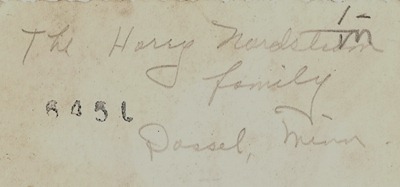 The Harry Nordstrom
family
Dassel, Minn.